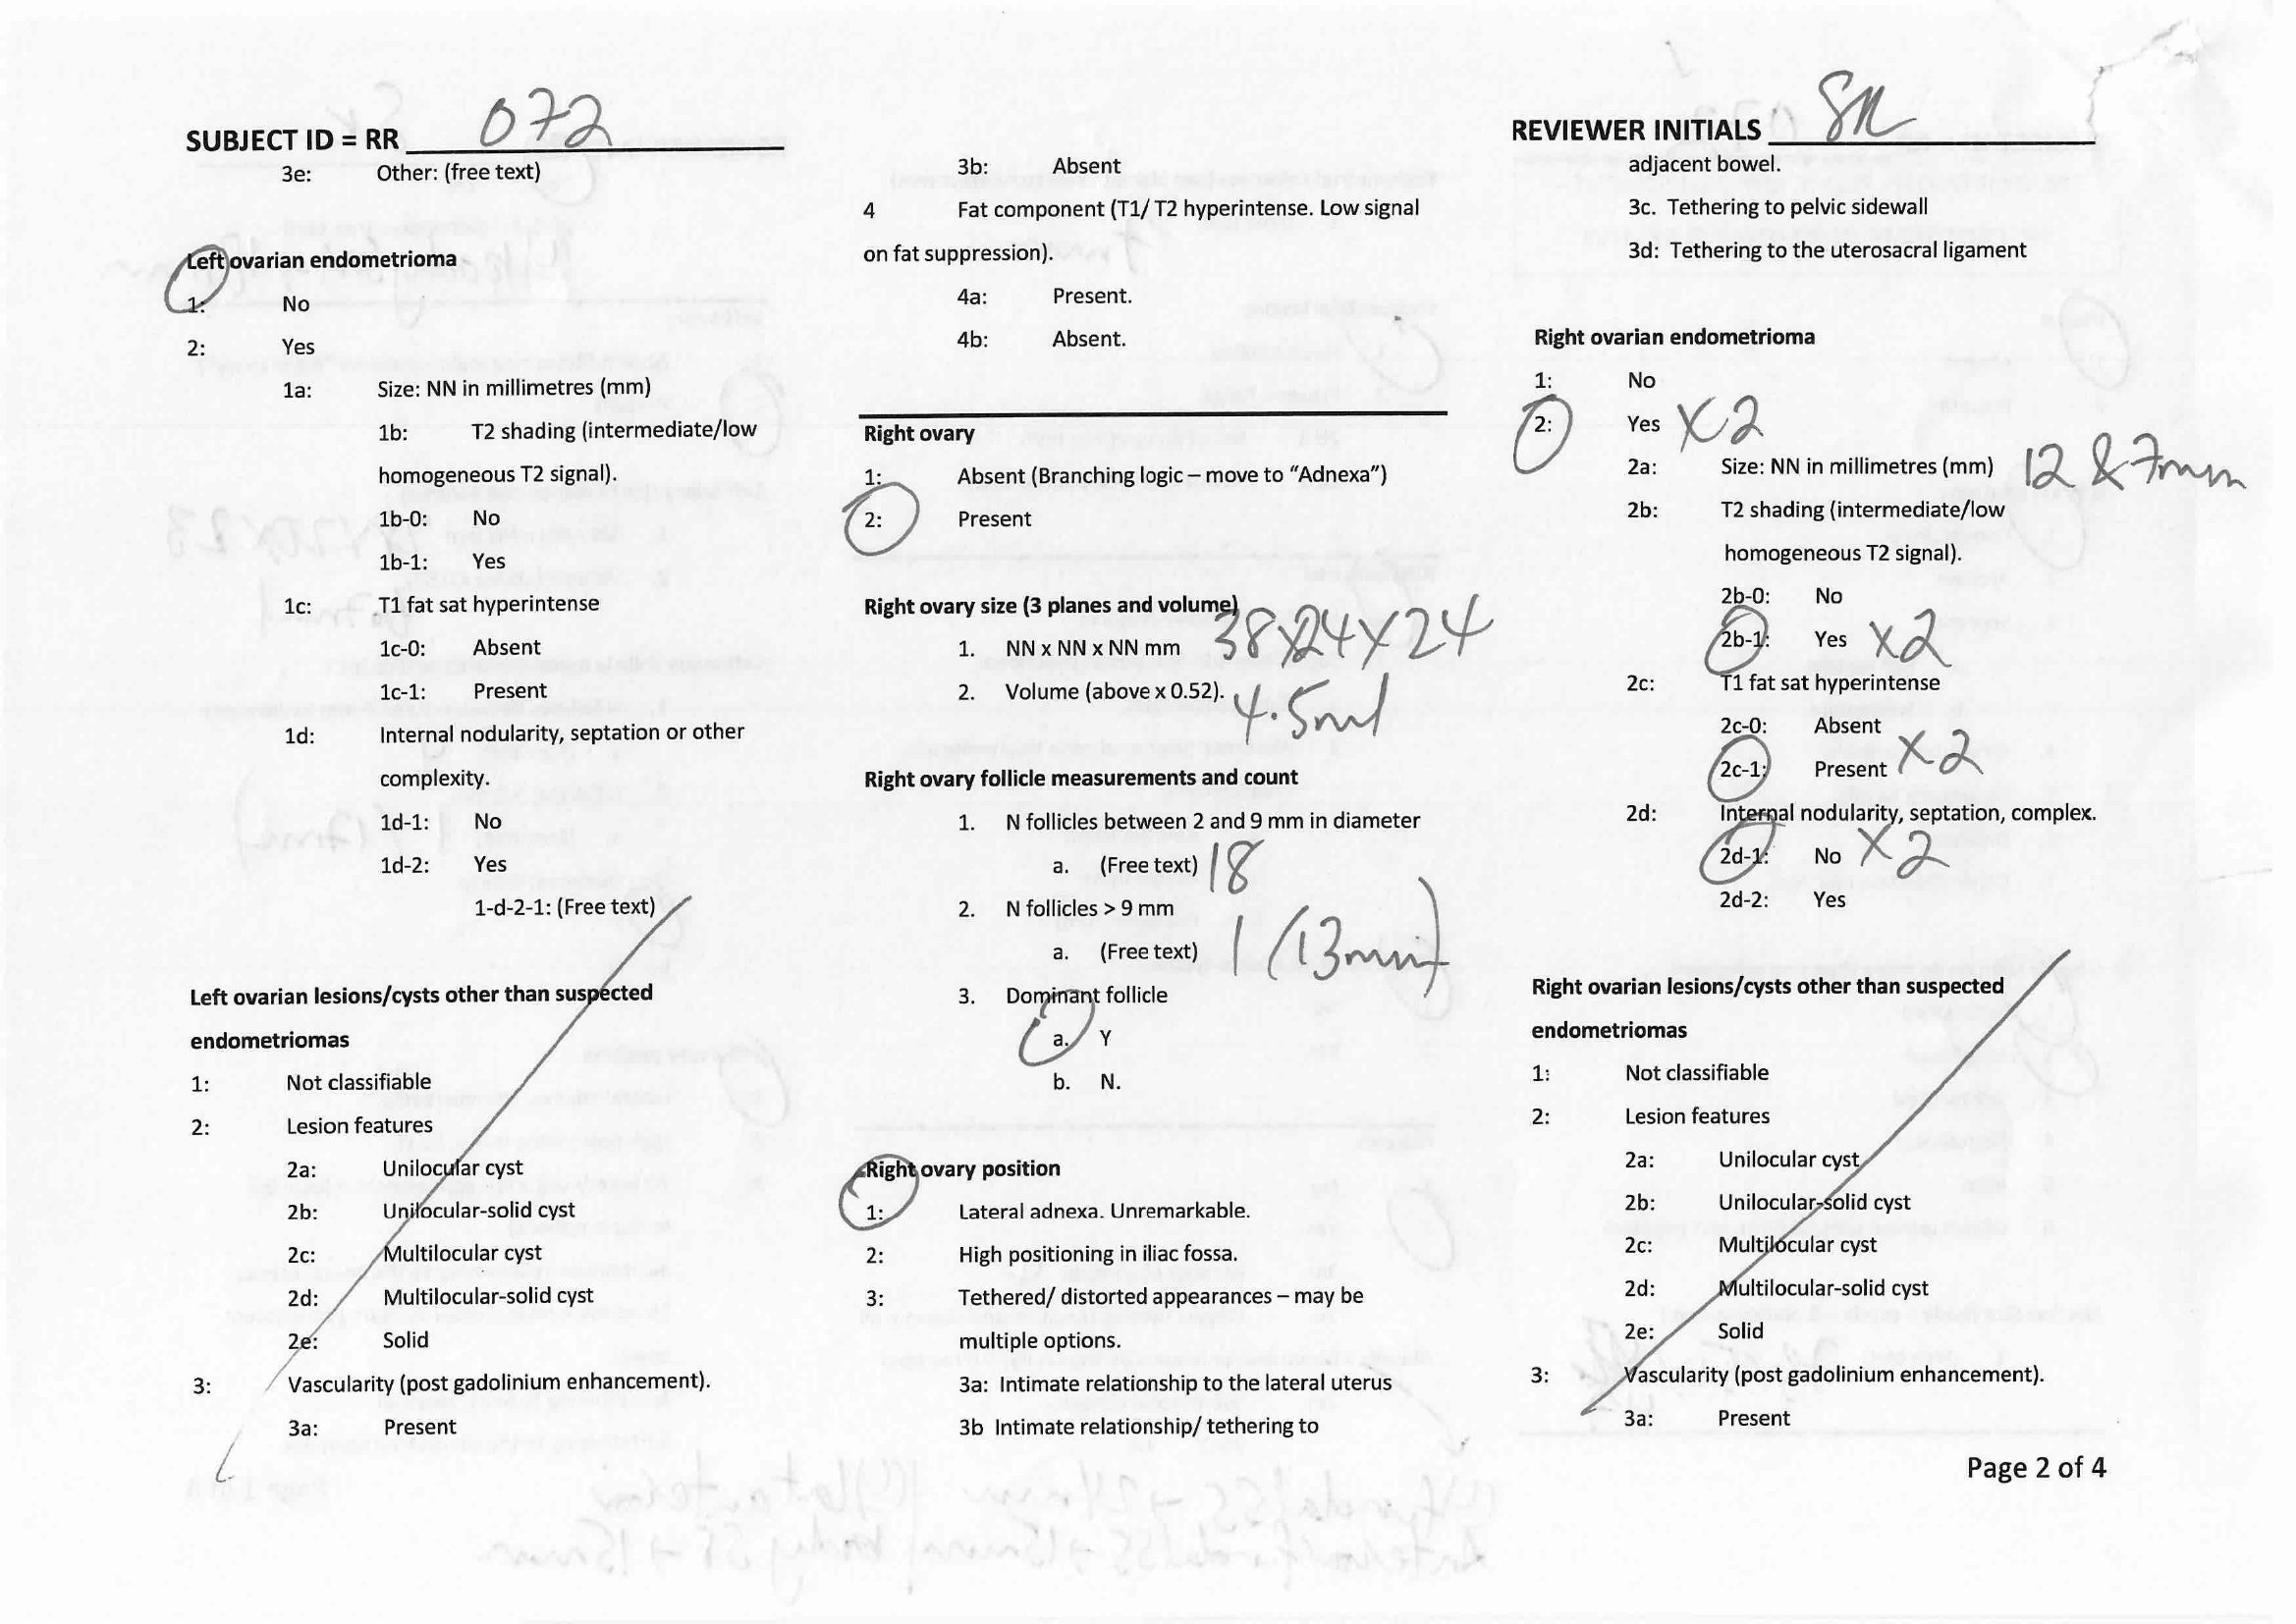 SUBJECT ID = RR 072
3e: Other: (free text)
Left ovarian endometrioma
1: No
2: Yes
1a: Size: NN in millimetres (mm)
1b: T2 shading (intermediate/low
homogeneous T2 signal).
1b-0: No
1b-1: Yes
1c: T1 fat sat hyperintense
1c-0: Absent
1c-1: Present
1d: Internal nodularity, septation or other
complexity.
1d-1: No
1d-2: Yes
1-d-2-1: (Free text)
Left ovarian lesions/cysts other than suspected
endometriomas
1: Not classifiable
2: Lesion features
2a: Unilocular cyst
2b: Unilocular-solid cyst
2c: Multilocular cyst
2d: Multilocular-solid cyst
2e: Solid
3: Vascularity (post gadolinium enhancement).
3a: Present
3b: Absent
4 Fat component (T1/ T2 hyperintense. Low signal
on fat suppression).
4a: Present.
4b: Absent.
Right ovary
1: Absent (Branching logic – move to “Adnexa”)
2: Present
Right ovary size (3 planes and volume)
1. NN x NN x NN mm 38x24x24
2. Volume (above x 0.52). 4.5ml
Right ovary follicle measurements and count
1. N follicles between 2 and 9 mm in diameter
a. (Free text) 18
2. N follicles > 9 mm
a. (Free text) 1 (13mm)
3. Dominant follicle
a. Y
b. N.
Right ovary position
1: Lateral adnexa. Unremarkable.
2: High positioning in iliac fossa.
3: Tethered/ distorted appearances – may be
multiple options.
3a: Intimate relationship to the lateral uterus
3b Intimate relationship/ tethering to
REVIEWER INITIALS
adjacent bowel.
3c. Tethering to pelvic sidewall
3d: Tethering to the uterosacral ligament
Right ovarian endometrioma
1: No
2: Yes X2
2a: Size: NN in millimetres (mm) 12 & 7mm
2b: T2 shading (intermediate/low
homogeneous T2 signal).
2b-0: No
2b-1: Yes X2
2c: T1 fat sat hyperintense
2c-0: Absent
2c-1: Present X2
2d: Internal nodularity, septation, complex.
2d-1: No X2
2d-2: Yes
Right ovarian lesions/cysts other than suspected
endometriomas
1: Not classifiable
2: Lesion features
2a: Unilocular cyst
2b: Unilocular-solid cyst
2c: Multilocular cyst
2d: Multilocular-solid cyst
2e: Solid
3: Vascularity (post gadolinium enhancement).
3a: Present
Page 2 of 4